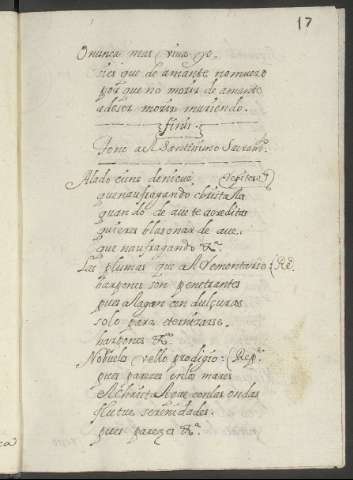 17
O nunca mas viva yo.
Pues que de amante no muero
por que no morir de amante
a de ser morir muriendo.
finis.
Tono a el Santissimo Sacramto.
Alado cisne de nieue,
que naufragando christales
quando de aue te acreditas
quieres blasonar de aue.
que naufragando &a.
Las plumas que a el remontarse
harpones son penetrantes
pues alagan con dulçuras
solo para eternizarse.
harpones &a.
No duelo bello prodigio
pues pareces en los mares
el christal que con las ondas
fluctue serenidades.
pues pareces &a.